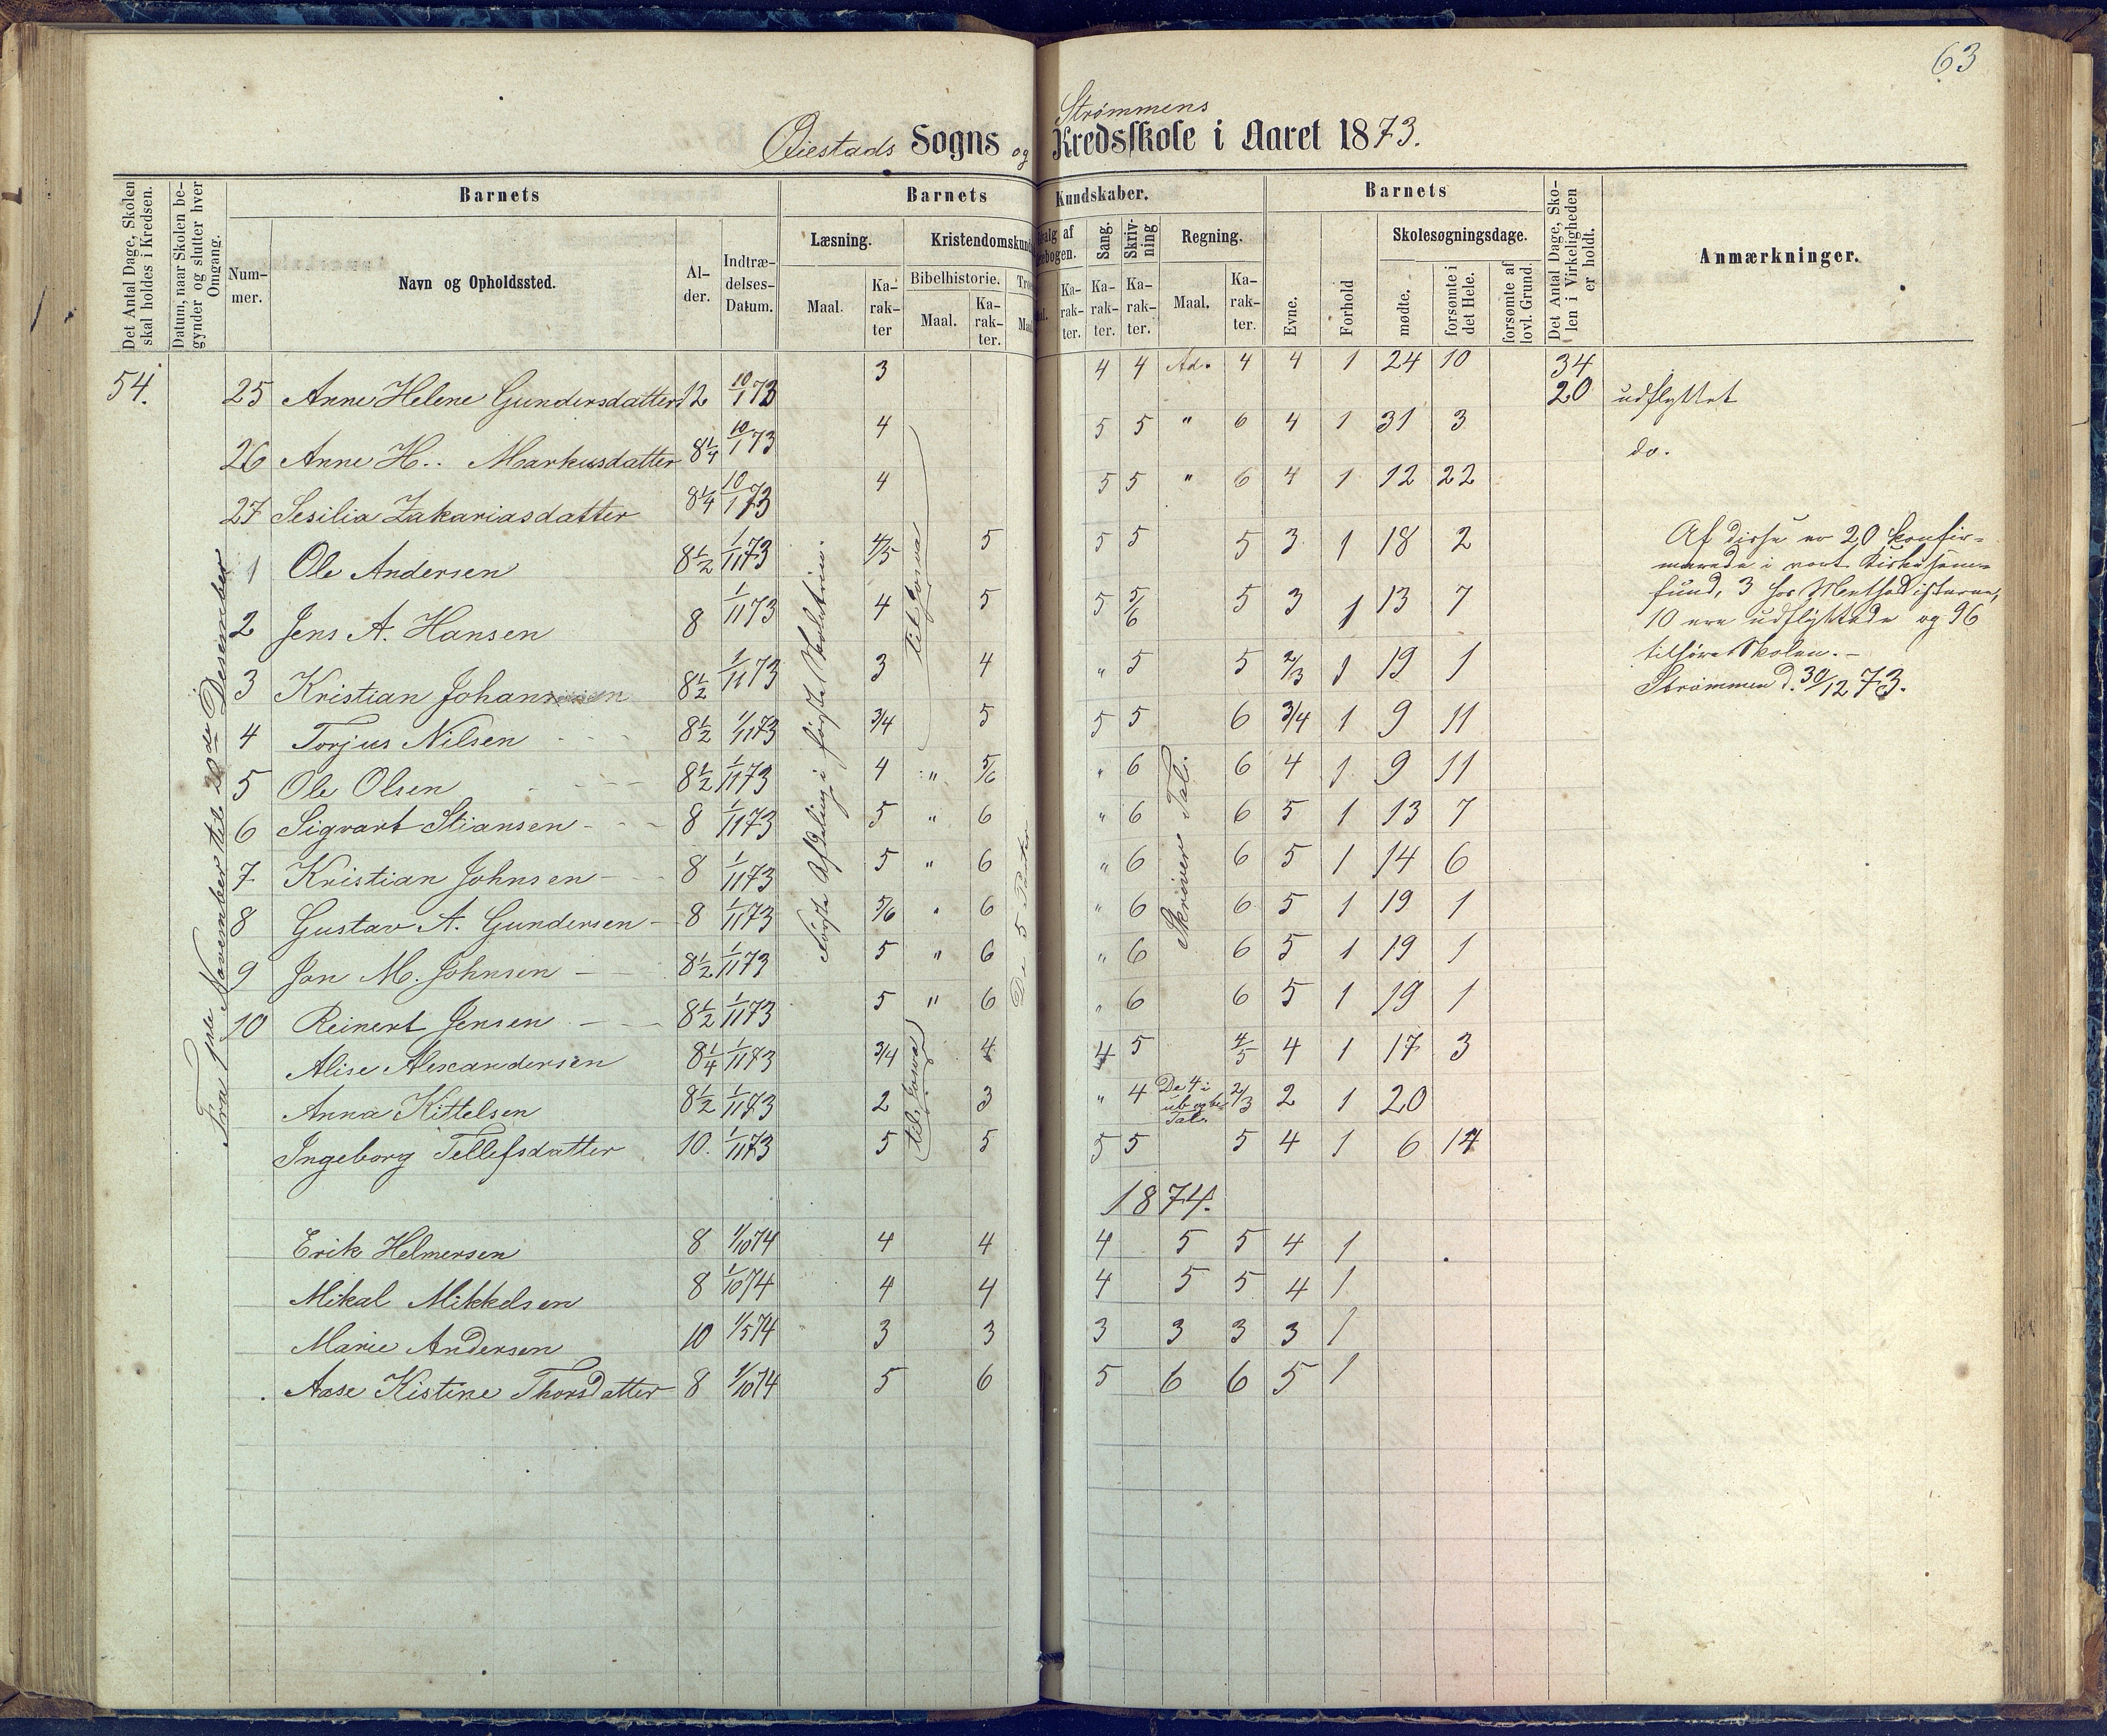 63
Strømmens
Øiestads Sogns og Kredsskole i Aaret 1873.
Det Antal Dage, Skolen skal holdes i Kredsen.
Datum, naar Skolen begynder og slutter hver Omgang.
Barnets
Nummer.
Navn og Opholdssted.
Alder.
Indtrædelses-Datum.
Barnets Kundskaber.
Læsning.
Maal.
Karakter
Kristendomskund
Bibelhistorie.
Maal.
Karakter.
Tro
Maa
valg af
sebogen.
al.
Karakter.
Sang.
Karakter.
Skrivning
Karakter.
Regning.
Maal.
Karakter.
Barnets
Evne.
Forhold
Skolesøgningsdage.
mødte.
forsømte i det Hele.
forsømte af lovl. Grund.
Det Antal Dage, Skolen i Virkeligheden er holdt.
Anmærkninger.
54. 25 Anne Helene Gundersdatter 12 10/1 73 3 4 4 Ad. 4 4 1 24 10 34 20 udflyttet
26 Anne H.. Markusdatter 8 1/4 10/1 73 4 5 5 " 6 4 1 31 3 do.
27 Sesilia Zakariasdatter 8 1/4 10/1 73 4 5 5 " 6 4 1 12 22
1 Ole Andersen 8 1/2 1/11 73 4/5 5 5 5 5 3 1 18 2
2 Jens A. Hansen 8 1/11 73 4 5 5 5/6 5 3 1 13 7
3 Kristian Johan 8 1/2 1/11 73 3 4 " 5 5 2/3 1 19 1
4 Torjus Nilsen 8 1/2 1/11 73 3/4 5 5 5 6 3/4 1 9 11
5 Ole Olsen 8 1/2 1/11 73 4 " 5/6 " 6 6 4 1 9 11
6 Sigvart Stiansen 8 1/11 73 5 " 6 " 6 6 5 1 13 7
7 Kristian Johnsen 8 1/11 73 5 " 6 " 6 6 5 1 14 6
8 Gustav A. Gundersen 8 1/11 73 5/6 " 6 " 6 6 5 1 19 1
9 Jon M. Johnsen 8 1/2 1/11 73 5 " 6 " 6 6 5 1 19 1
10 Reinert Jensen 8 1/2 1/11 73 5 " 6 " 6 6 5 1 19 1
Alise Alexandersen 8 1/4 1/11 73 3/4 4 4 5 4/5 4 1 17 3
Anna Kittelsen 8 1/2 1/11 73 2 3 " 4 De 4 i ub. og be. Tal. 2/3 2 1 20
Ingeborg Tellefsdatter 10. 1/11 73 5 5 5 5 5 4 1 6 14
1874.
Erik Helmersen 8 1/10 74 4 4 4 5 5 4 1
Mikal Mikkelsen 8 1/10 74 4 4 4 5 5 4 1
Marie Andersen 10 1/5 74 3 3 3 3 3 3 1
Aase Kistine Thorsdatter 8 1/10 74 5 6 5 6 6 5 1
Fra 1ste November til 20de Desember
første Afdeling i første Skoletrin.
til Josva
til Josva
De 5 Parter
Skriver Tal.
Af disse er 20 konfir-
merede i vort Kirkesam-
fund, 3 hos Methodisterne,
10 ere udflyttede og 96
tilhøre Skolen. –
Strømmen d. 30/12 73.